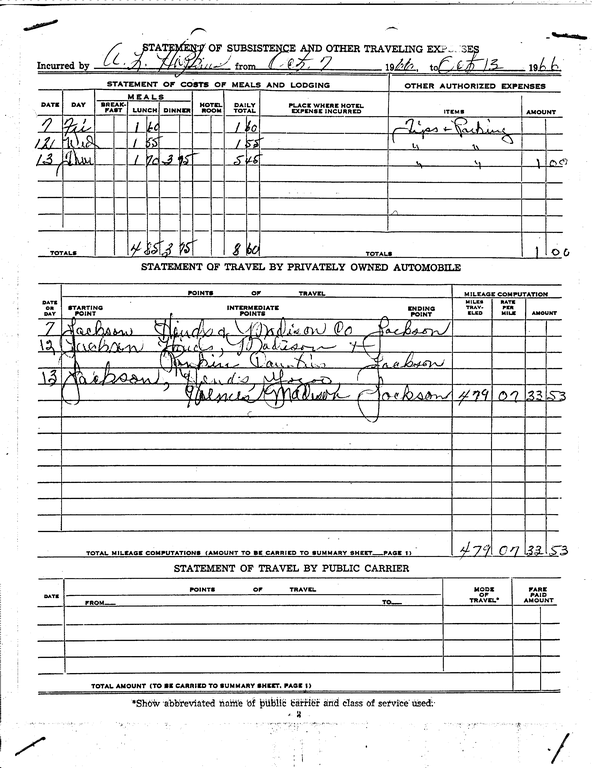 STATEMENT OF SUBSISTENCE AND OTHER TRAVELING EXPENSES
Incurred by A. L. Hopkins from Oct 7 1966, to Oct 13 1966
STATEMENT OF COSTS OF MEALS AND LODGING OTHER AUTHORIZED EXPENSES
DATE DAY MEALS BREAK-FAST LUNCH DINNER HOTEL ROOM DAILY TOTAL PLACE WHERE HOTEL EXPENSE INCURRED ITEMS AMOUNT
7 Fri 1 60 1 60 Tips & Parking
12 Wed 1 55 1 55 " "
13 Thur 1 70 3 75 5 45 " " 1 00
TOTALS 4 85 3 75 8 60 TOTALS 1 00
STATEMENT OF TRAVEL BY PRIVATELY OWNED AUTOMOBILE
POINTS OF TRAVEL MILEAGE COMPUTATION
DATE OR DAY STARTING POINT INTERMEDIATE POINTS ENDING POINT MILES TRAV-ELED RATE PER MILE AMOUNT
7 Jackson Hinds & Madison Co Jackson
12 Jackson Hinds, Madison &
Rankin Counties Jackson
13 Jackson, Hinds, Yazoo
Holmes & Madison Jackson 479 07 33 53
TOTAL MILEAGE COMPUTATIONS (AMOUNT TO BE CARRIED TO SUMMARY SHEET__PAGE 1) 479 07 33 53
STATEMENT OF TRAVEL BY PUBLIC CARRIER
DATE POINTS OF TRAVEL MODE OF TRAVEL* FARE PAID AMOUNT
FROM__ TO__
TOTAL AMOUNT (TO BE CARRIED TO SUMMARY SHEET, PAGE 1)
*Show abbreviated name of public carrier and class of service used.
- 2